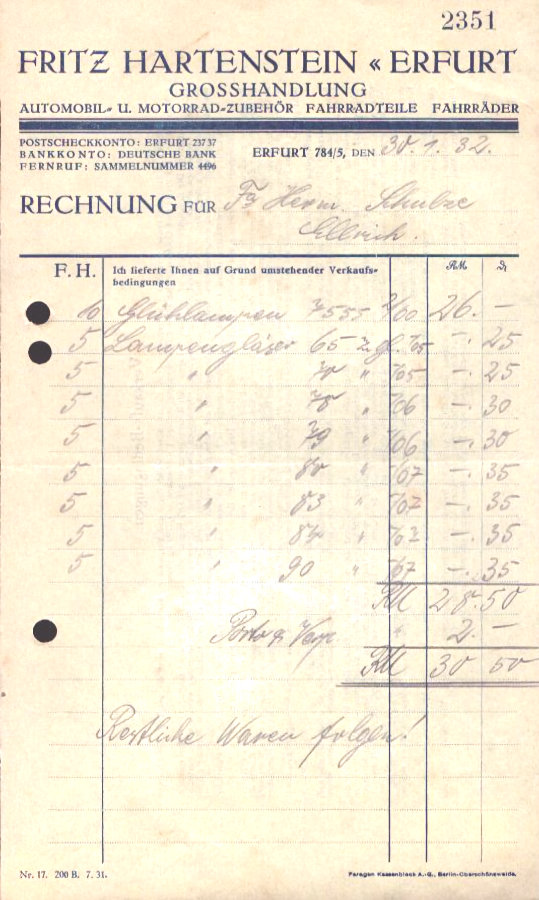 2351
FRITZ HARTENSTEIN « ERFURT
GROSSHANDLUNG
AUTOMOBIL- U. MOTORRAD-ZUBEHÖR FAHRRADTEILE FAHRRÄDER
POSTSCHECKKONTO: ERFURT 23737
BANKKONTO: DEUTSCHE BANK
FERNRUF: SAMMELNUMMER 4496
ERFURT 784/5, DEN 30.1.32.
RECHNUNG FÜR Fa Herm. Schulze
Ellrich.
F. H. Ich lieferte Ihnen auf Grund umstehender Verkaufs-
bedingungen
RM
10 Glühlampen 7555 26.—
5 Lampengläser 65 —. 25
5 " 70 " %05 —. 25
5 " 78 " %06 —. 30
5 " 79 " %06 —. 30
5 " 80 " %07 —. 35
5 " 83 " %07 —. 35
5 " 84 " %07 —. 35
5 " 90 " %07 —. 35
RM 28.50
Porto & Verp " 2.—
RM 30 50
Restliche Waren folgen!
Nr. 17. 200 B. 7. 31.
Paragon Kassenblock A.-G., Berlin-Oberschöneweide.